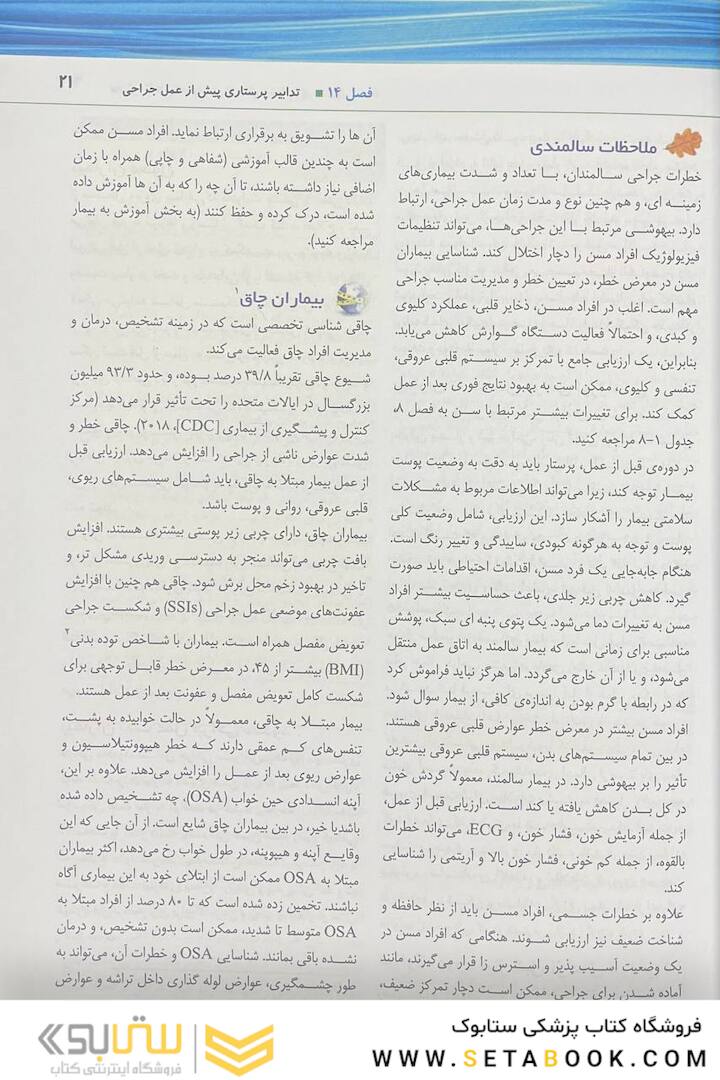 فصل ۱۴ ■ تدابیر پرستاری پیش از عمل جراحی
۲۱
ملاحظات سالمندی
خطرات جراحی سالمندان، با تعداد و شدت بیماری‌های
زمینه ای، و هم چنین نوع و مدت زمان عمل جراحی، ارتباط
دارد. بیهوشی مرتبط با این جراحی‌ها، می‌تواند تنظیمات
فیزیولوژیک افراد مسن را دچار اختلال کند. شناسایی بیماران
مسن در معرض خطر، در تعیین خطر و مدیریت مناسب جراحی
مهم است. اغلب در افراد مسن، ذخایر قلبی، عملکرد کلیوی
و کبدی، و احتمالاً فعالیت دستگاه گوارش کاهش می‌یابد.
بنابراین، یک ارزیابی جامع با تمرکز بر سیستم قلبی عروقی،
تنفسی و کلیوی، ممکن است به بهبود نتایج فوری بعد از عمل
کمک کند. برای تغییرات بیشتر مرتبط با سن به فصل ۸،
جدول ۱–۸ مراجعه کنید.
در دوره‌ی قبل از عمل، پرستار باید به دقت به وضعیت پوست
بیمار توجه کند، زیرا می‌تواند اطلاعات مربوط به مشکلات
سلامتی بیمار را آشکار سازد. این ارزیابی، شامل وضعیت کلی
پوست و توجه به هرگونه کبودی، ساییدگی و تغییر رنگ است.
هنگام جابه‌جایی یک فرد مسن، اقدامات احتیاطی باید صورت
گیرد. کاهش چربی زیر جلدی، باعث حساسیت بیشتر افراد
مسن به تغییرات دما می‌شود. یک پتوی پنبه ای سبک، پوشش
مناسبی برای زمانی است که بیمار سالمند به اتاق عمل منتقل
می‌شود، و یا از آن خارج می‌گردد. اما هرگز نباید فراموش کرد
که در رابطه با گرم بودن به اندازه‌ی کافی، از بیمار سوال شود.
افراد مسن بیشتر در معرض خطر عوارض قلبی عروقی هستند.
در بین تمام سیستم‌های بدن، سیستم قلبی عروقی بیشترین
تأثیر را بر بیهوشی دارد. در بیمار سالمند، معمولاً گردش خون
در کل بدن کاهش یافته یا کند است. ارزیابی قبل از عمل،
از جمله آزمایش خون، فشار خون، و ECG، می‌تواند خطرات
بالقوه، از جمله کم خونی، فشار خون بالا و آریتمی را شناسایی
کند.
علاوه بر خطرات جسمی، افراد مسن باید از نظر حافظه و
شناخت ضعیف نیز ارزیابی شوند. هنگامی که افراد مسن در
یک وضعیت آسیب پذیر و استرس زا قرار می‌گیرند، مانند
آماده شدن برای جراحی، ممکن است دچار تمرکز ضعیف،
آن ها را تشویق به برقراری ارتباط نماید. افراد مسن ممکن
است به چندین قالب آموزشی (شفاهی و چاپی) همراه با زمان
اضافی نیاز داشته باشند، تا آن چه را که به آن ها آموزش داده
شده است، درک کرده و حفظ کنند (به بخش آموزش به بیمار
مراجعه کنید).
بیماران چاق۱
چاقی شناسی تخصصی است که در زمینه تشخیص، درمان و
مدیریت افراد چاق فعالیت می‌کند.
شیوع چاقی تقریباً ۳۹/۸ درصد بوده، و حدود ۹۳/۳ میلیون
بزرگسال در ایالات متحده را تحت تأثیر قرار می‌دهد (مرکز
کنترل و پیشگیری از بیماری [CDC]، ۲۰۱۸). چاقی خطر و
شدت عوارض ناشی از جراحی را افزایش می‌دهد. ارزیابی قبل
از عمل بیمار مبتلا به چاقی، باید شامل سیستم‌های ریوی،
قلبی عروقی، روانی و پوست باشد.
بیماران چاق، دارای چربی زیر پوستی بیشتری هستند. افزایش
بافت چربی می‌تواند منجر به دسترسی وریدی مشکل تر، و
تاخیر در بهبود زخم محل برش شود. چاقی هم چنین با افزایش
عفونت‌های موضعی عمل جراحی (SSIs) و شکست جراحی
تعویض مفصل همراه است. بیماران با شاخص توده بدنی۲
(BMI) بیشتر از ۴۵، در معرض خطر قابل توجهی برای
شکست کامل تعویض مفصل و عفونت بعد از عمل هستند.
بیمار مبتلا به چاقی، معمولاً در حالت خوابیده به پشت،
تنفس‌های کم عمقی دارند که خطر هیپوونتیلاسیون و
عوارض ریوی بعد از عمل را افزایش می‌دهد. علاوه بر این،
آپنه انسدادی حین خواب (OSA)، چه تشخیص داده شده
باشدیا خیر، در بین بیماران چاق شایع است. از آن جایی که این
وقایع آپنه و هیپوپنه، در طول خواب رخ می‌دهد، اکثر بیماران
مبتلا به OSA ممکن است از ابتلای خود به این بیماری آگاه
نباشند. تخمین زده شده است که تا ۸۰ درصد از افراد مبتلا به
OSA متوسط تا شدید، ممکن است بدون تشخیص، و درمان
نشده باقی بمانند. شناسایی OSA و خطرات آن، می‌تواند به
طور چشمگیری، عوارض لوله گذاری داخل تراشه و عوارض
فروشگاه کتاب پزشکی ستابوک
WWW.SETABOOK.COM
ستابوک
فروشگاه اینترنتی کتاب